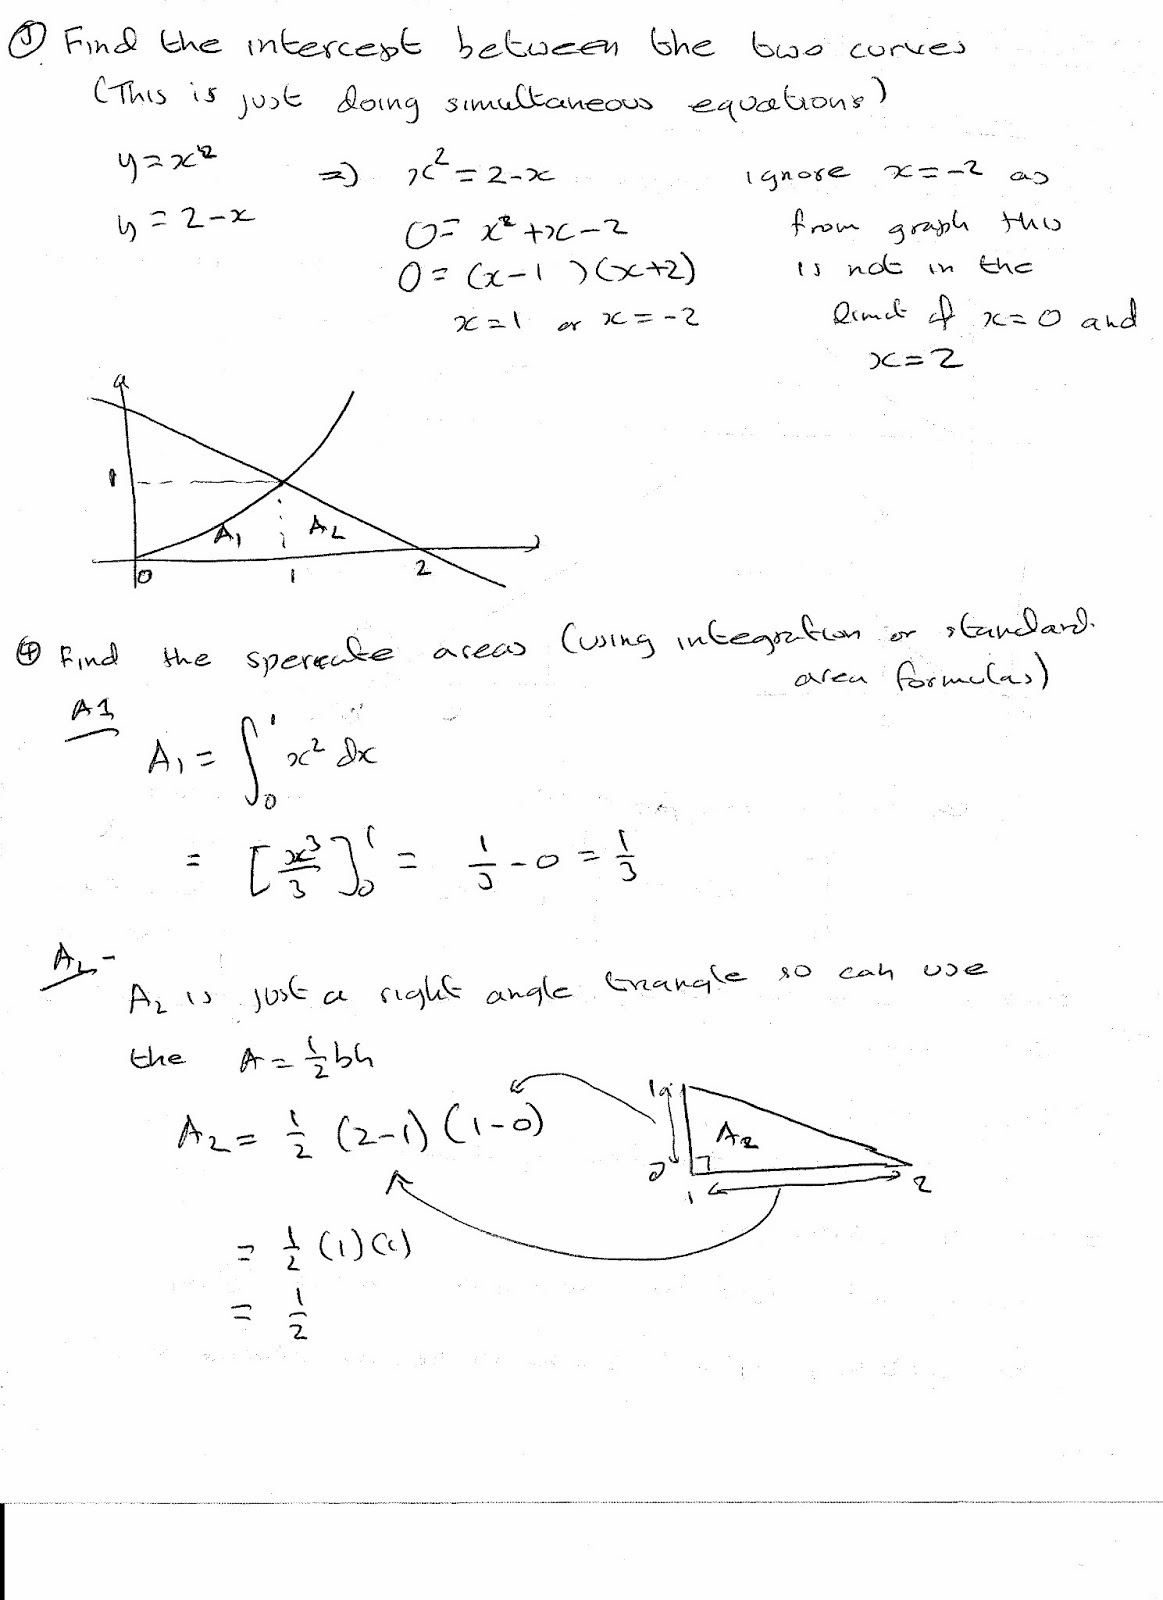 ③ Find the intercept between the two curves
(This is just doing simultaneous equations)
y = x² ⇒ x² = 2 - x ignore x = -2 as
y = 2 - x 0 = x² + x - 2 from graph this
0 = (x - 1)(x + 2) is not in the
x = 1 or x = -2 limit of x = 0 and
x = 2
1
A₁ A₂
0 1 2
④ Find the spereate areas (using integration or standard
area formulas)
A1
A₁ = ∫₀¹ x² dx
= [x³/3]₀¹ = 1/3 - 0 = 1/3
A₂ -
A₂ is just a right angle triangle so can use
the A = ½bh
A₂ = ½ (2-1) (1-0)
1 A₂
0 1 2
= ½ (1)(1)
= ½